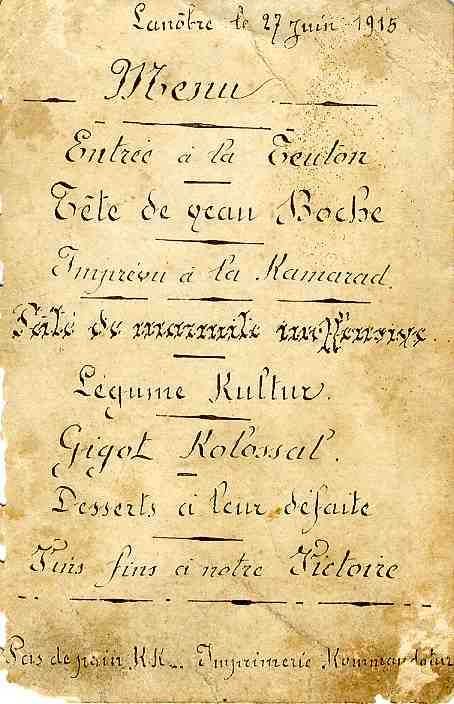 Lanôbre le 27 juin 1915
Menu
Entrée à la Teuton
Tête de veau Boche
Imprévu à la Kamarad.
Pâté de marmite inoffensive.
Légume Kultur.
Gigot Kolossal.
Desserts à leur défaite
Vins fins à notre Victoire
Pas de pain KK_ Imprimerie Kommandatur